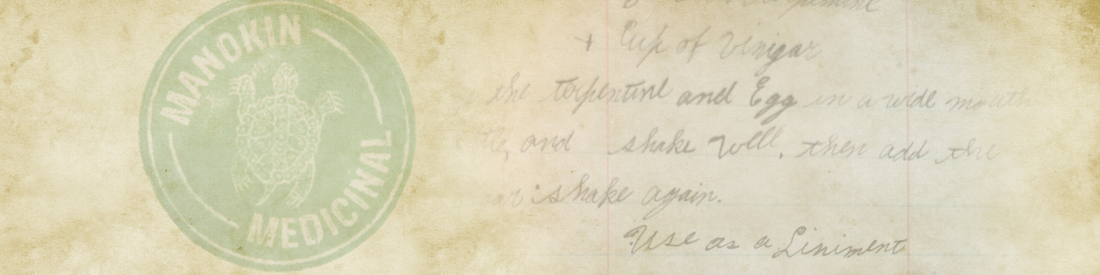 MANOKIN
MEDICINAL
+ Cup of Vinigar
the terpentine and Egg in a wide mouth
and shake well, then add the
shake again.
Use as a Liniment